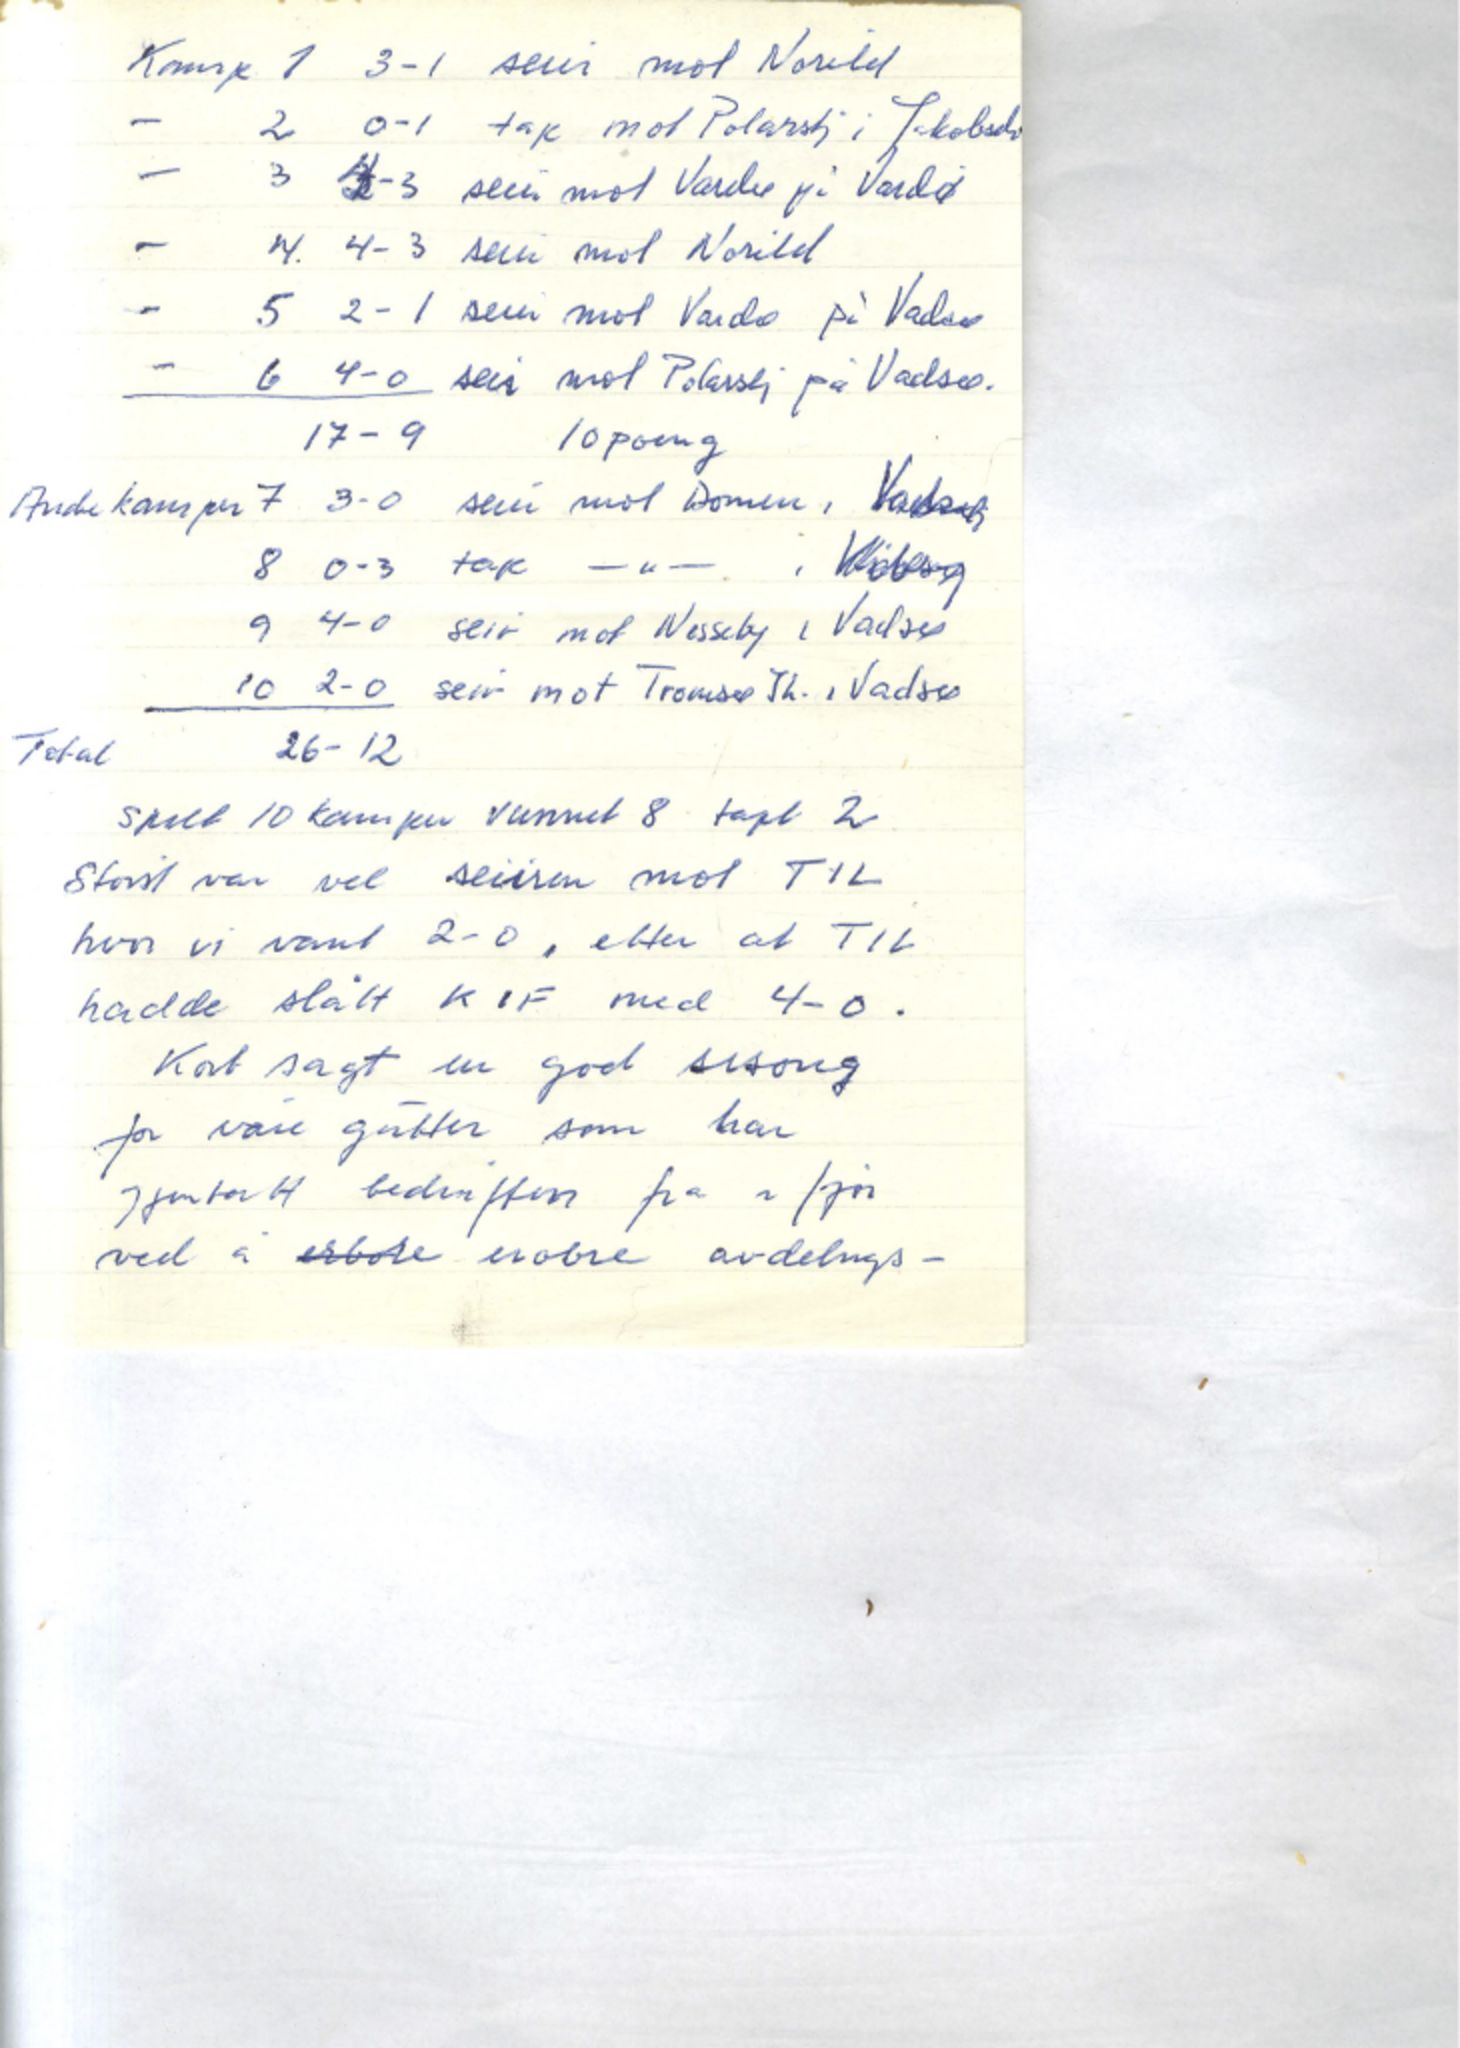 Kamp 1 3-1 seir mot Norild
- 2 0-1 tap mot Polarstj i Jakobselv
- 3 4-3 seir mot Vardø på Vardø
- 4. 4-3 seir mot Norild
- 5 2-1 seir mot Vardø på Vadsø
- 6 4-0 seir mot Polarstj på Vadsø.
17-9 10 poeng
Andre kamper 7 3-0 seir mot Domen i
8 0-3 tap -"- i Kiberg
9 4-0 seir mot Nesseby i Vadsø
10 2-0 seir mot Tromsø Il. i Vadsø
Total 26-12
spelt 10 kamper vunnet 8 tapt 2
Størst var vel seieren mot TIL
hvor vi vant 2-0, etter at TIL
hadde slått KIF med 4-0.
Kort sagt en god sesong
for våre gutter som har
gjentatt bedriften fra i fjor
ved å erbore erobre avdelings-